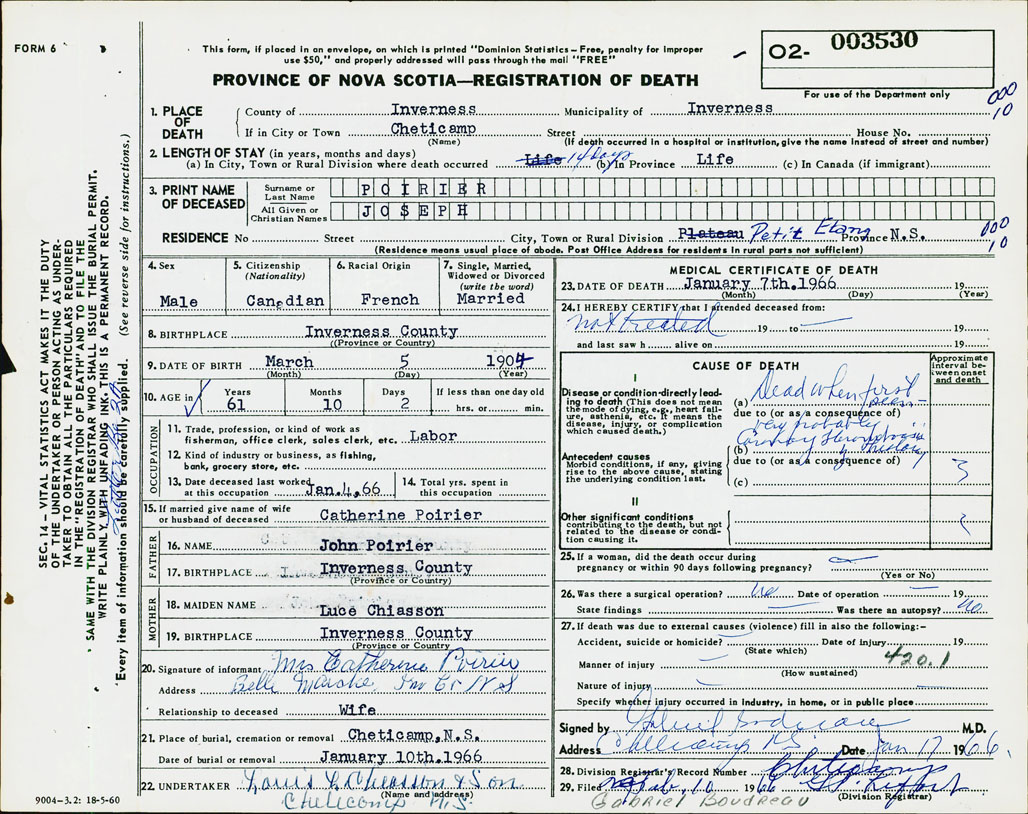 FORM 6
This form, if placed in an envelope, on which is printed "Dominion Statistics – Free, penalty for improper
use $50," and properly addressed will pass through the mail "FREE"
PROVINCE OF NOVA SCOTIA—REGISTRATION OF DEATH
O2- 003530
For use of the Department only
000
10
1. PLACE OF DEATH
County of Inverness Municipality of Inverness
If in City or Town Cheticamp Street House No.
(Name) (If death occurred in a hospital or institution, give the name instead of street and number)
2. LENGTH OF STAY (in years, months and days)
(a) In City, Town or Rural Division where death occurred Life 14 days (b) In Province Life (c) In Canada (if immigrant)
3. PRINT NAME OF DECEASED
Surname or Last Name POIRIER
All Given or Christian Names JOSEPH
RESIDENCE No Street City, Town or Rural Division Plateau Petit Etang Province N.S.
000
10
(Residence means usual place of abode. Post Office Address for residents in rural parts not sufficient)
4. Sex
Male
5. Citizenship
(Nationality)
Canadian
6. Racial Origin
French
7. Single, Married,
Widowed or Divorced
(write the word)
Married
8. BIRTHPLACE Inverness County
(Province or Country)
9. DATE OF BIRTH March 5 1904
(Month) (Day) (Year)
10. AGE in
Years
61
Months
10
Days
2
If less than one day old
hrs. or min.
OCCUPATION
11. Trade, profession, or kind of work as
fisherman, office clerk, sales clerk, etc. Labor
12. Kind of industry or business, as fishing,
bank, grocery store, etc.
13. Date deceased last worked
at this occupation Jan.4,66
14. Total yrs. spent in
this occupation
15. If married give name of wife
or husband of deceased Catherine Poirier
FATHER
16. NAME John Poirier
17. BIRTHPLACE Inverness County
(Province or Country)
MOTHER
18. MAIDEN NAME Luce Chiasson
19. BIRTHPLACE Inverness County
(Province or Country)
20. Signature of informant Mrs Catherine Poirier
Address Belle Marche Inv Co N S
Relationship to deceased Wife
21. Place of burial, cremation or removal Cheticamp,N.S.
Date of burial or removal January 10th.1966
22. UNDERTAKER Louis L Chiasson & Son
(Name and address)
Cheticamp N.S.
MEDICAL CERTIFICATE OF DEATH
23. DATE OF DEATH January 7th.1966 19
(Month) (Day) (Year)
24. I HEREBY CERTIFY that I attended deceased from:
not treated 19 to 19
and last saw h alive on 19
CAUSE OF DEATH
Approximate interval between onset and death
I
Disease or condition directly leading to death (This does not mean the mode of dying, e.g., heart failure, asthenia, etc. It means the disease, injury, or complication which caused death.)
(a) Dead when first seen
due to (or as a consequence of)
very probably
Antecedent causes
Morbid conditions, if any, giving rise to the above cause, stating the underlying condition last.
(b) Coronary Thrombosis by history
due to (or as a consequence of)
(c)
II
Other significant conditions
contributing to the death, but not related to the disease or condition causing it.
25. If a woman, did the death occur during
pregnancy or within 90 days following pregnancy?
(Yes or No)
26. Was there a surgical operation? no Date of operation 19
State findings Was there an autopsy? no
27. If death was due to external causes (violence) fill in also the following:-
Accident, suicide or homicide? Date of injury 19
(State which)
420.1
Manner of injury
(How sustained)
Nature of injury
Specify whether injury occurred in industry, in home, or in public place
Signed by M.D.
Address Cheticamp NS Date Jan 17 1966.
28. Division Registrar's Record Number Cheticamp
29. Filed 10 1966
(Division Registrar)
Gabriel Boudreau
SEC. 14 – VITAL STATISTICS ACT MAKES IT THE DUTY
OF THE UNDERTAKER OR PERSON ACTING AS UNDER-
TAKER TO OBTAIN ALL THE PARTICULARS REQUIRED
IN THE "REGISTRATION OF DEATH" AND TO FILE THE
SAME WITH THE DIVISION REGISTRAR WHO SHALL ISSUE THE BURIAL PERMIT.
WRITE PLAINLY WITH UNFADING INK. THIS IS A PERMANENT RECORD.
Every item of information should be carefully supplied. (See reverse side for instructions.)
9004-3.2: 18-5-60